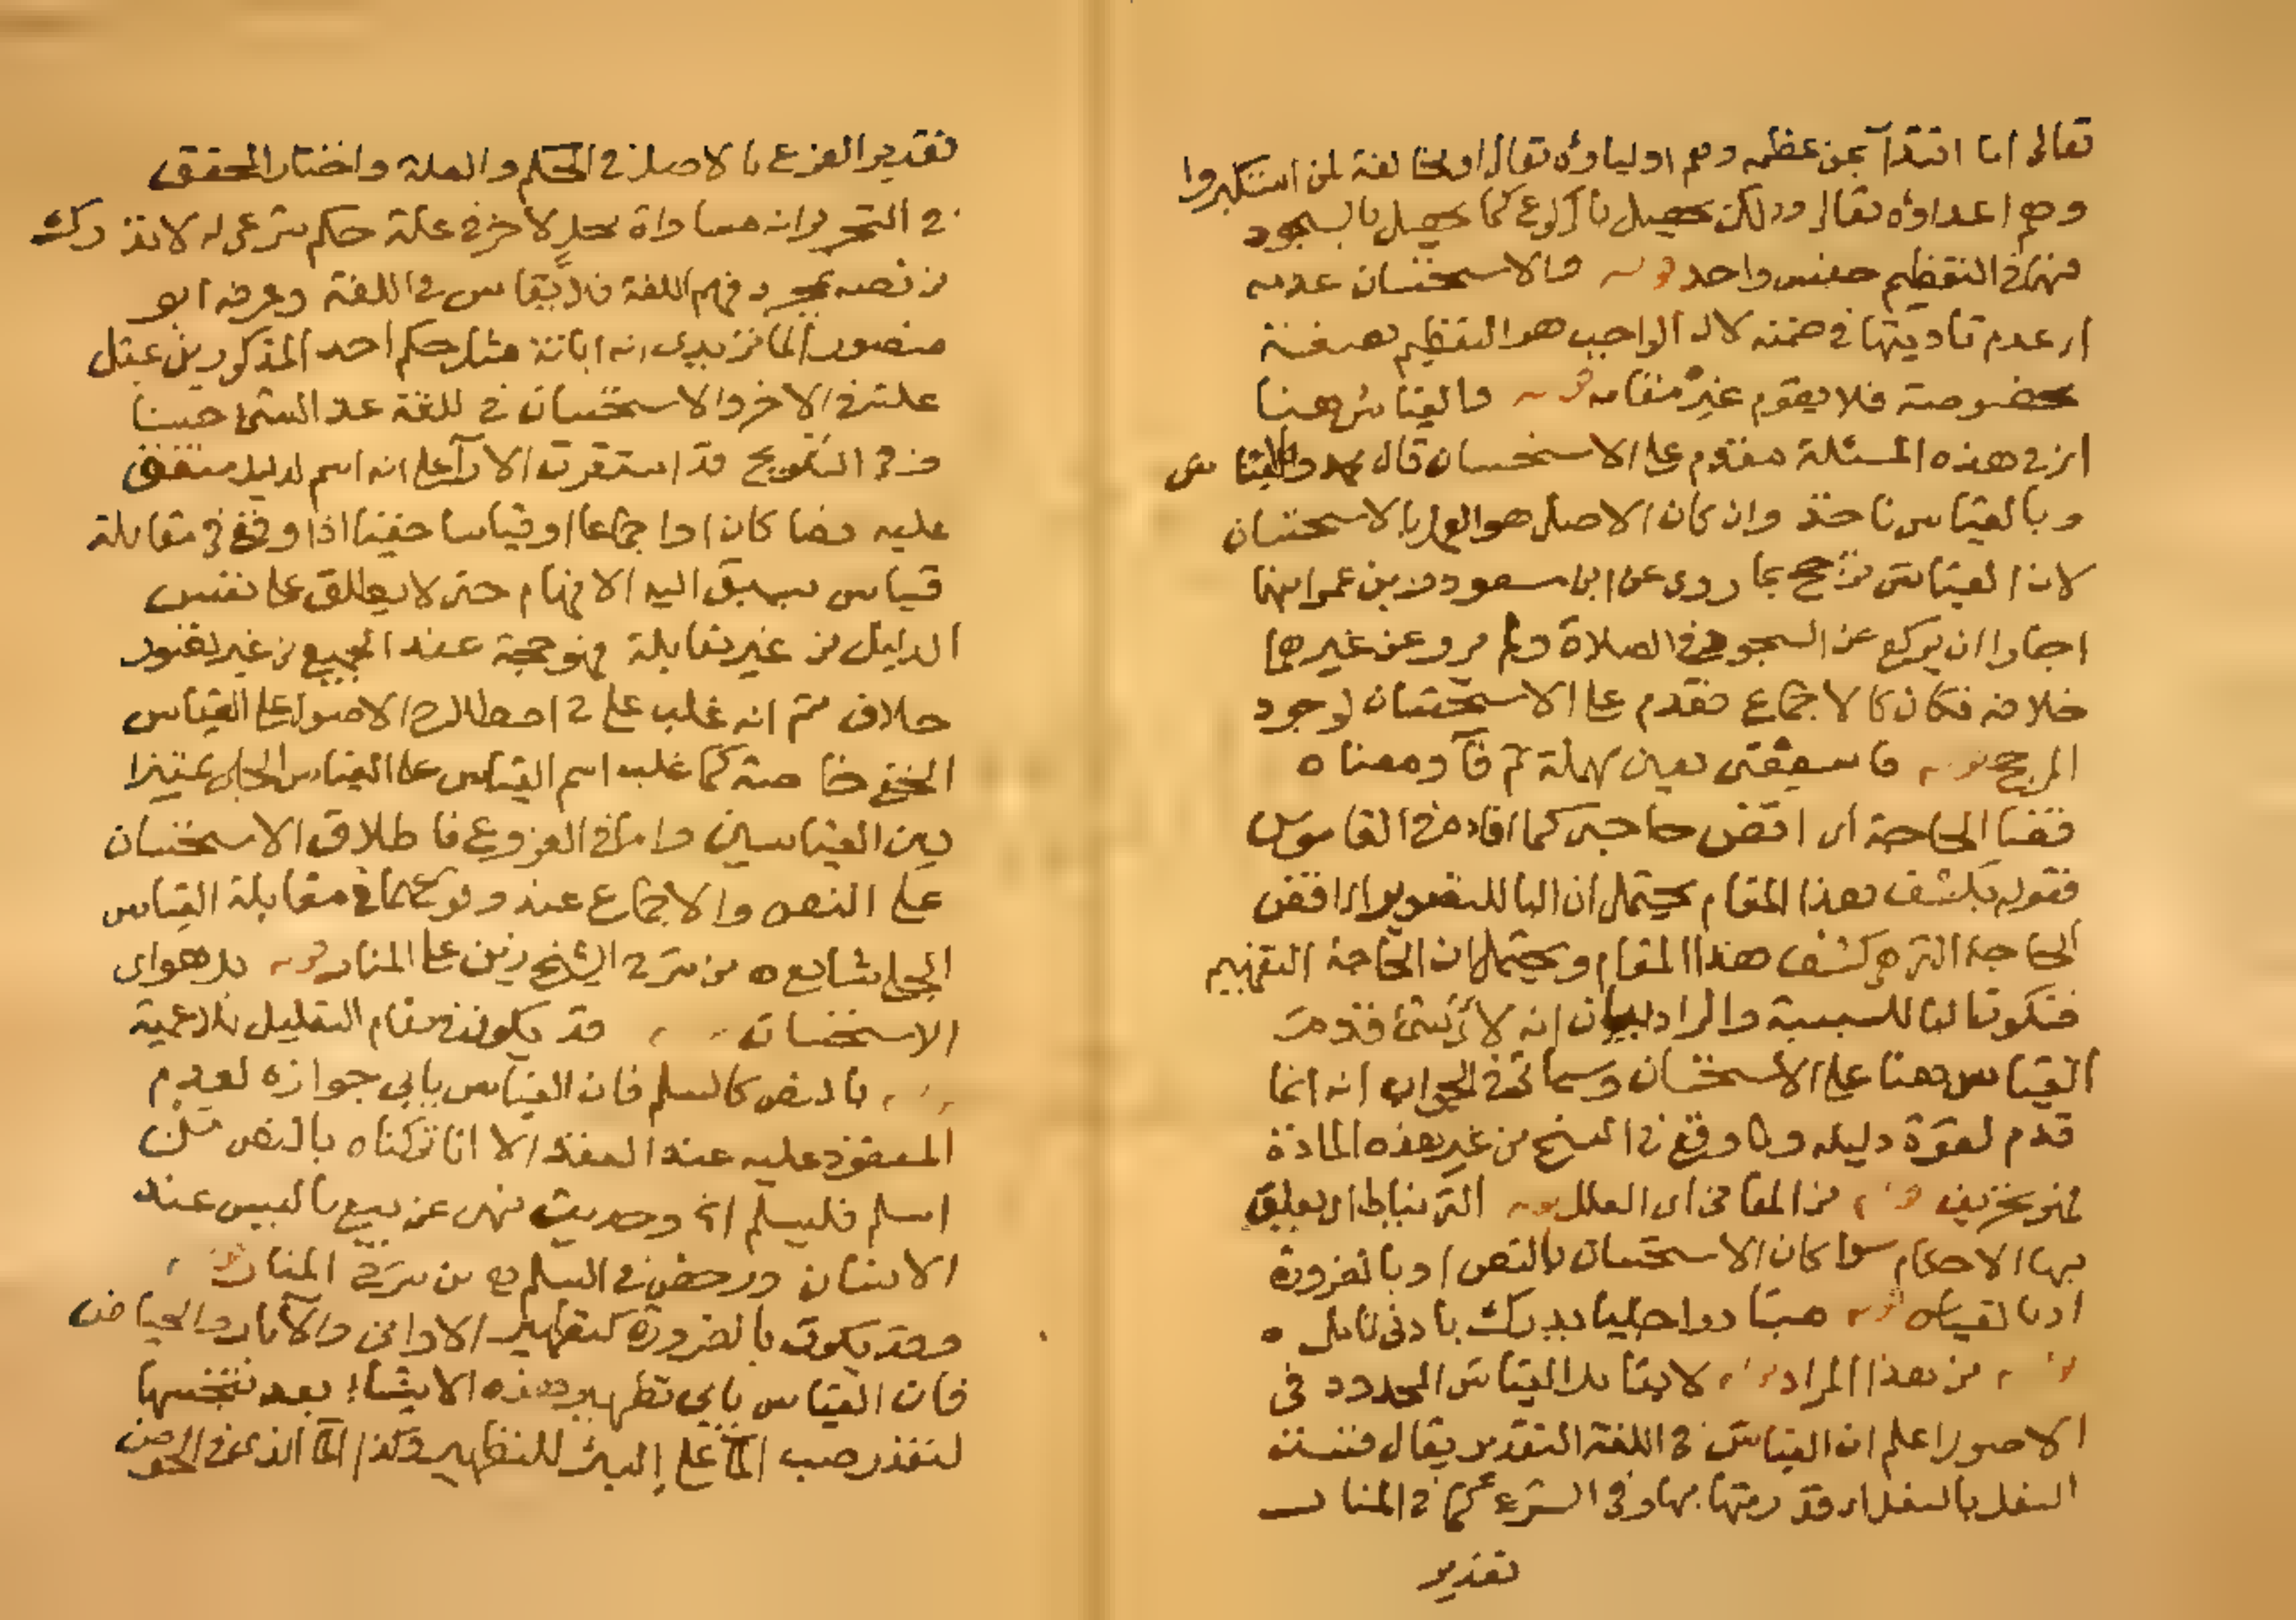 تعالى اما اقتدآ بمن عظمه وهم اولياؤه تعالى او مخالفة لمن استكبروا
وهم اعداؤه تعالى وذلك يحصل بالركوع كما يحصل بالسجود
فهما في التعظيم جنس واحد قوله والاستحسان عدمه
اي عدم تأديتها في ضمنه لان الواجب هو التعظيم بصفة
مخصوصة فلا يقوم غيره مقامه قوله والقياس هنا
اي في هذه المسئلة مقدم على الاستحسان قال محمد والقياس
وبالقياس ناخذ وان كان الاصل هو العمل بالاستحسان
لان القياس ترجح بما روي عن ابن مسعود وبن عمر انهما
اجازا ان يركع عن السجود في الصلاة ولم يرو عن غيرهما
خلافه فكان كالاجماع فقدم على الاستحسان لوجود
المرجح قوله فاسعفني بعين مهملة ثم فآ ومعناه
قضا الحاجة اي اقض حاجتي كما افاده في القاموس
فقوله بكشف هذا المقام يحتمل ان البا للتصوير اي اقض
الحاجة التي هي كشف هذا المقام ويحتمل ان الحاجة التفهيم
فتكون البا للسببية والمراد بيان انه لاي شئ قدمت
القياس هنا على الاستحسان وسياتي في الجواب انه انما
قدم لقوة دليله وما وقع في النسخ من غير هذه المادة
فهو تحريف قوله من المعاني اي العلل قوله التي يناط اي يعلق
بها الاحكام سوا كان الاستحسان بالنص او بالضرورة
او بالقياس قوله هنا دواجليا يدرك بادنى تامل
قوله من هذا المراد قوله لا يقابل القياس المحدود في
الاصول اعلم ان القياس في اللغة التقدير يقال قست
النعل بالنعل اي قدرتها بها وفي الشرع كما في المنار
تقدير
تقدير الفرع بالاصل في الحكم والعلة واختار المحقق
في التحرير انه مساواة محل لاخر في علة حكم شرعي له لا تدرك
من نصه بمجرد فهم اللغة فلا يقاس في اللغة وعرفه ابو
منصور الماتريدي انه ابانة مثل حكم احد المذكورين بمثل
علته في الاخر والاستحسان في اللغة عد الشئ حسنا
وفي التلويح قد استقرت الارآ على انه اسم لدليل متفق
عليه نصا كان او اجماعا او قياسا خفيا اذا وقع في مقابلة
قياس يسبق اليه الافهام حتى لا يطلق على نفس
الدليل من غير مقابلة فهو حجة عند الجميع من غير تصور
خلاف ثم انه غلب على في اصطلاح الاصول على القياس
الخفي خاصة كما غلب اسم القياس على القياس الجلي تمييزا
بين القياسين واما في الفروع فاطلاق الاستحسان
على النص والاجماع عند وقوعهما في مقابلة القياس
الجلي شايع ه من شرح الشيخ زين على المنار قوله بل هو اي
الاستحسان قد يكون في مقام التعليل للاعمية
بالنص كالسلم فان القياس يابى جوازه لعدم
المعقود عليه عند العقد الا انا تركناه بالنص من
اسلم فليسلم الخ وحديث نهى عن بيع ما ليس عند
الانسان ورخص في السلم ه من شرح المنار
وقد يكون بالضرورة كتطهير الاواني والآبار والحياض
فان القياس يابى تطهير هذه الاشيا بعد تنجسها
لتعذر صب المآ على البئر للتطهير وكذا المآ الذي في الحوض